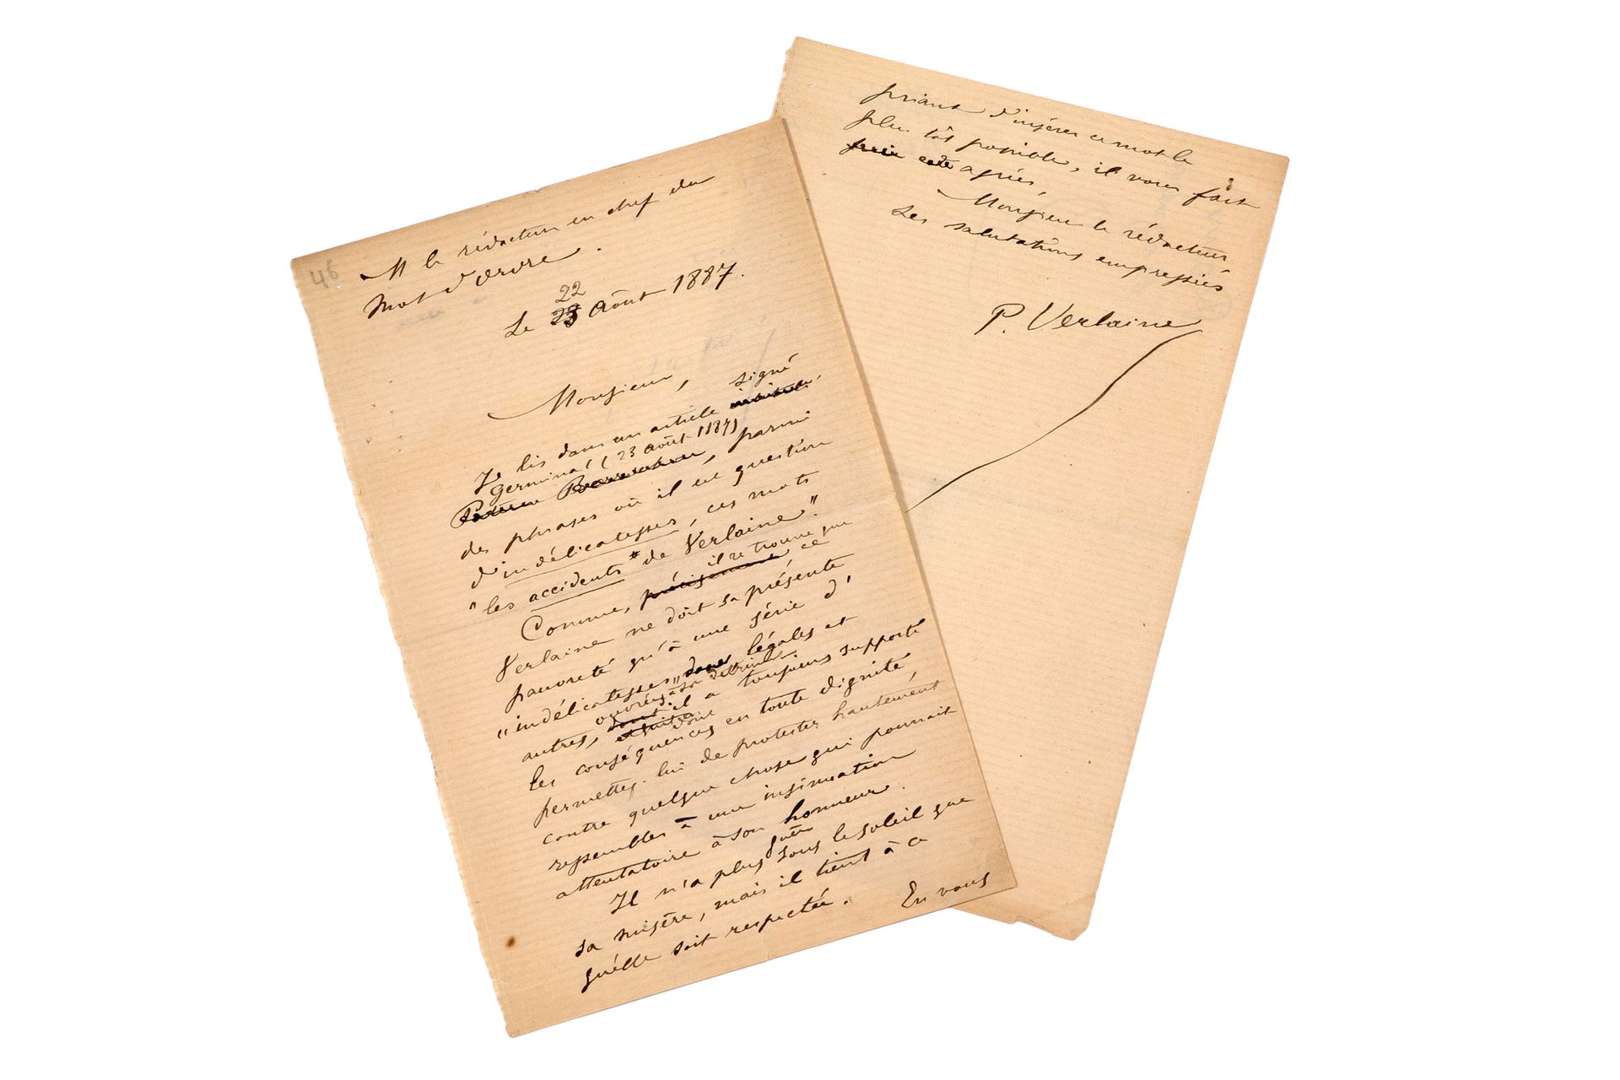 46
M le rédacteur en chef du
Mot d'Ordre.
22
Le 23 Août 1887.
Monsieur,
signé
Je lis dans un article
Germinal (23 août 1887)
parmi
des phrases où il est question
d'indélicatesses, ces mots
"les accidents" de Verlaine".
il se trouve que
Comme, précisément ce
Verlaine ne doit sa présente
pauvreté qu'à une série d'
"indélicatesses" dans légales et
ouvrés à son détriment
autres, dont il a toujours supporté
donc
les conséquences en toute dignité,
permettez-lui de protester hautement
contre quelque chose qui pourrait
ressembler à une insinuation
attentatoire à son honneur.
guère
Il n'a plus sous le soleil que
sa misère, mais il tient à ce
qu'elle soit respectée. En vous
priant d'insérer ce mot le
plus tôt possible, il vous fait
agréer,
Monsieur le rédacteur
ses salutations empressées
P. Verlaine